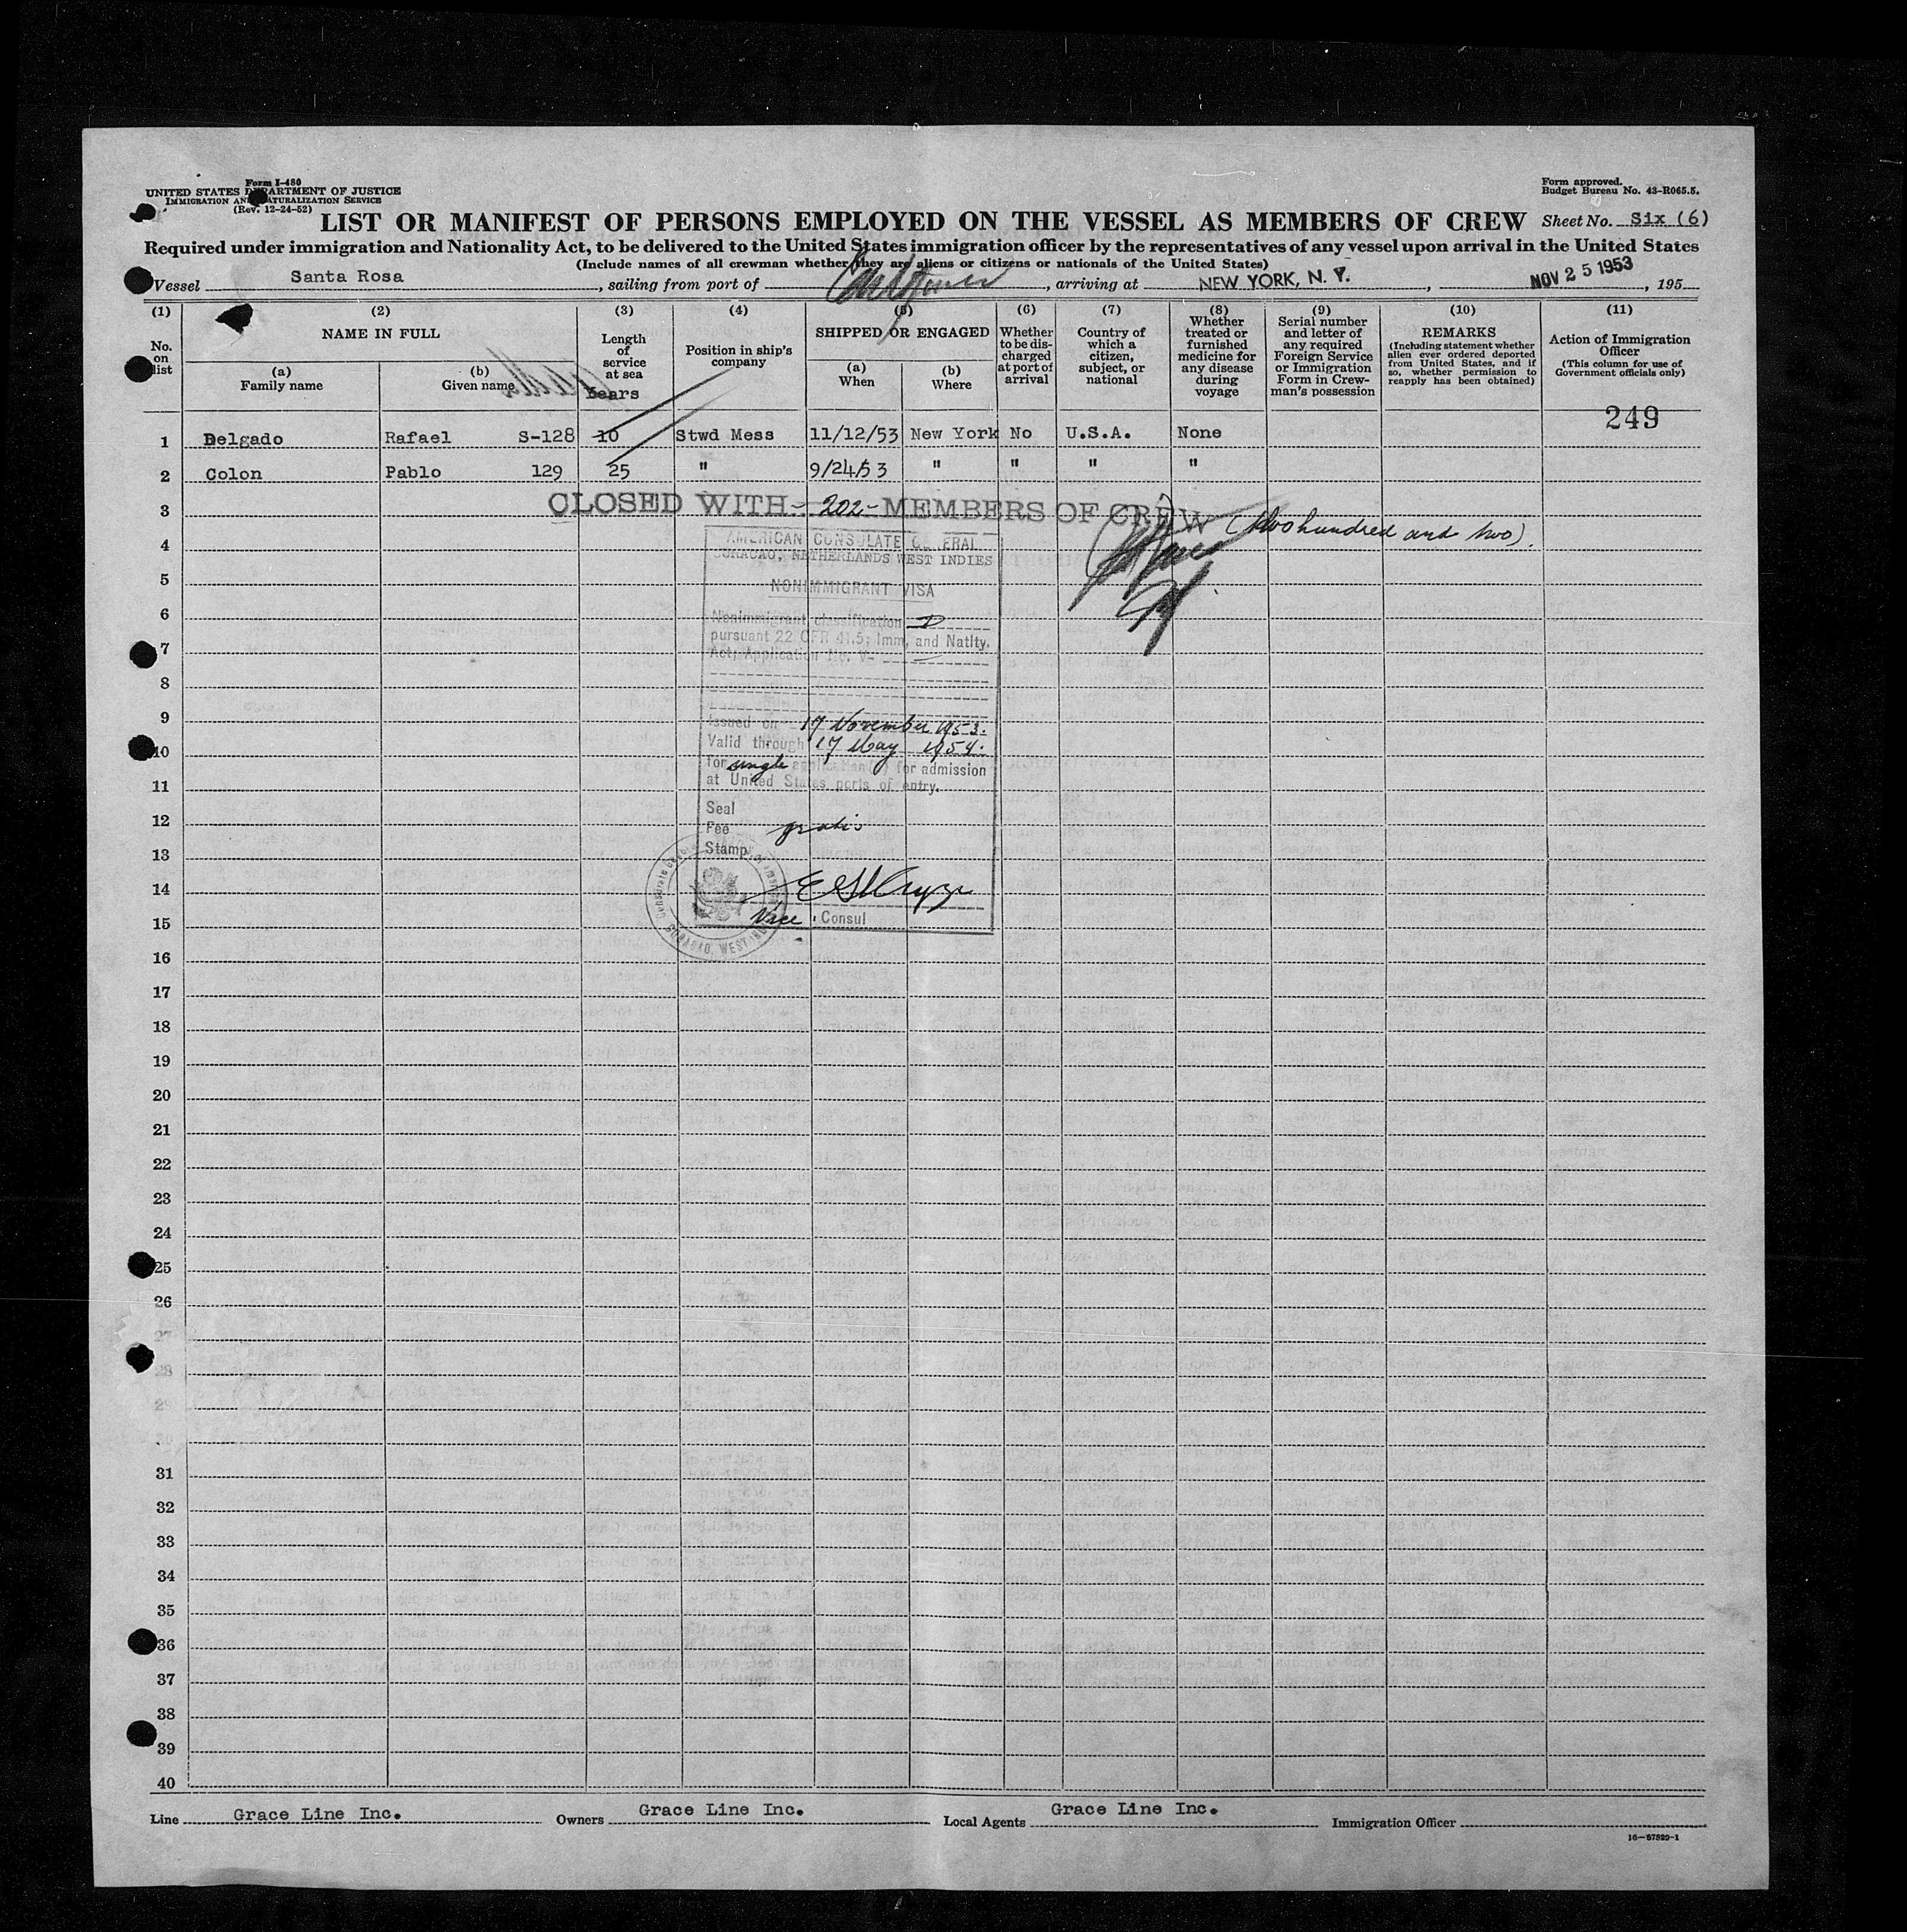 Form I-480
UNITED STATES DEPARTMENT OF JUSTICE
IMMIGRATION AND NATURALIZATION SERVICE
(Rev. 12-24-52)
Form approved.
Budget Bureau No. 43-R065.5.
LIST OR MANIFEST OF PERSONS EMPLOYED ON THE VESSEL AS MEMBERS OF CREW
Sheet No. Six (6)
Required under immigration and Nationality Act, to be delivered to the United States immigration officer by the representatives of any vessel upon arrival in the United States
(Include names of all crewman whether they are aliens or citizens or nationals of the United States)
Vessel Santa Rosa, sailing from port of, arriving at NEW YORK, N. Y., NOV 25 1953, 195
(1) No. on list
(2) NAME IN FULL
(a) Family name
(b) Given name
(3) Length of service at sea
Years
(4) Position in ship's company
(5) SHIPPED OR ENGAGED
(a) When
(b) Where
(6) Whether to be discharged at port of arrival
(7) Country of which a citizen, subject, or national
(8) Whether treated or furnished medicine for any disease during voyage
(9) Serial number and letter of any required Foreign Service or Immigration Form in Crewman's possession
(10) REMARKS
(Including statement whether alien ever ordered deported from United States, and if so, whether permission to reapply has been obtained)
(11) Action of Immigration Officer
(This column for use of Government officials only)
249
1 Delgado Rafael S-128 10 Stwd Mess 11/12/53 New York No U.S.A. None
2 Colon Pablo 129 25 " 9/24/53 " " " "
3 CLOSED WITH - 202 - MEMBERS OF CREW (two hundred and two).
4
AMERICAN CONSULATE GENERAL
CURACAO, NETHERLANDS WEST INDIES
5
NONIMMIGRANT VISA
6
Nonimmigrant classification D
pursuant 22 CFR 41.5; Imm. and Natlty.
7
Act; Application No. V-
8
9
Issued on 17 November 1953.
Valid through 17 May 1954.
10
for single application(s) for admission
at United States ports of entry.
11
Seal
12
Fee gratis
Stamp
13
14
Vice Consul
15
CURACAO, WEST
16
17
18
19
20
21
22
23
24
25
26
27
28
29
30
31
32
33
34
35
36
37
38
39
40
Line Grace Line Inc. Owners Grace Line Inc. Local Agents Grace Line Inc. Immigration Officer
16-57829-1